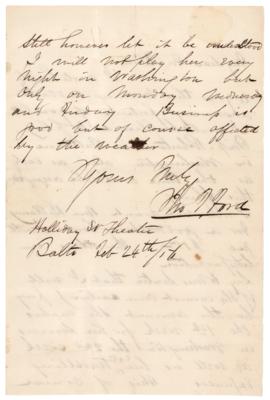 Still however let it be understood
I will not play her every
night in Washington but
only on Monday Wednesday
and Friday Business is
good but of course affected
by the weather
Yours Truly
Jno T Ford
Holliday St Theatre
Balto Feb 24th/